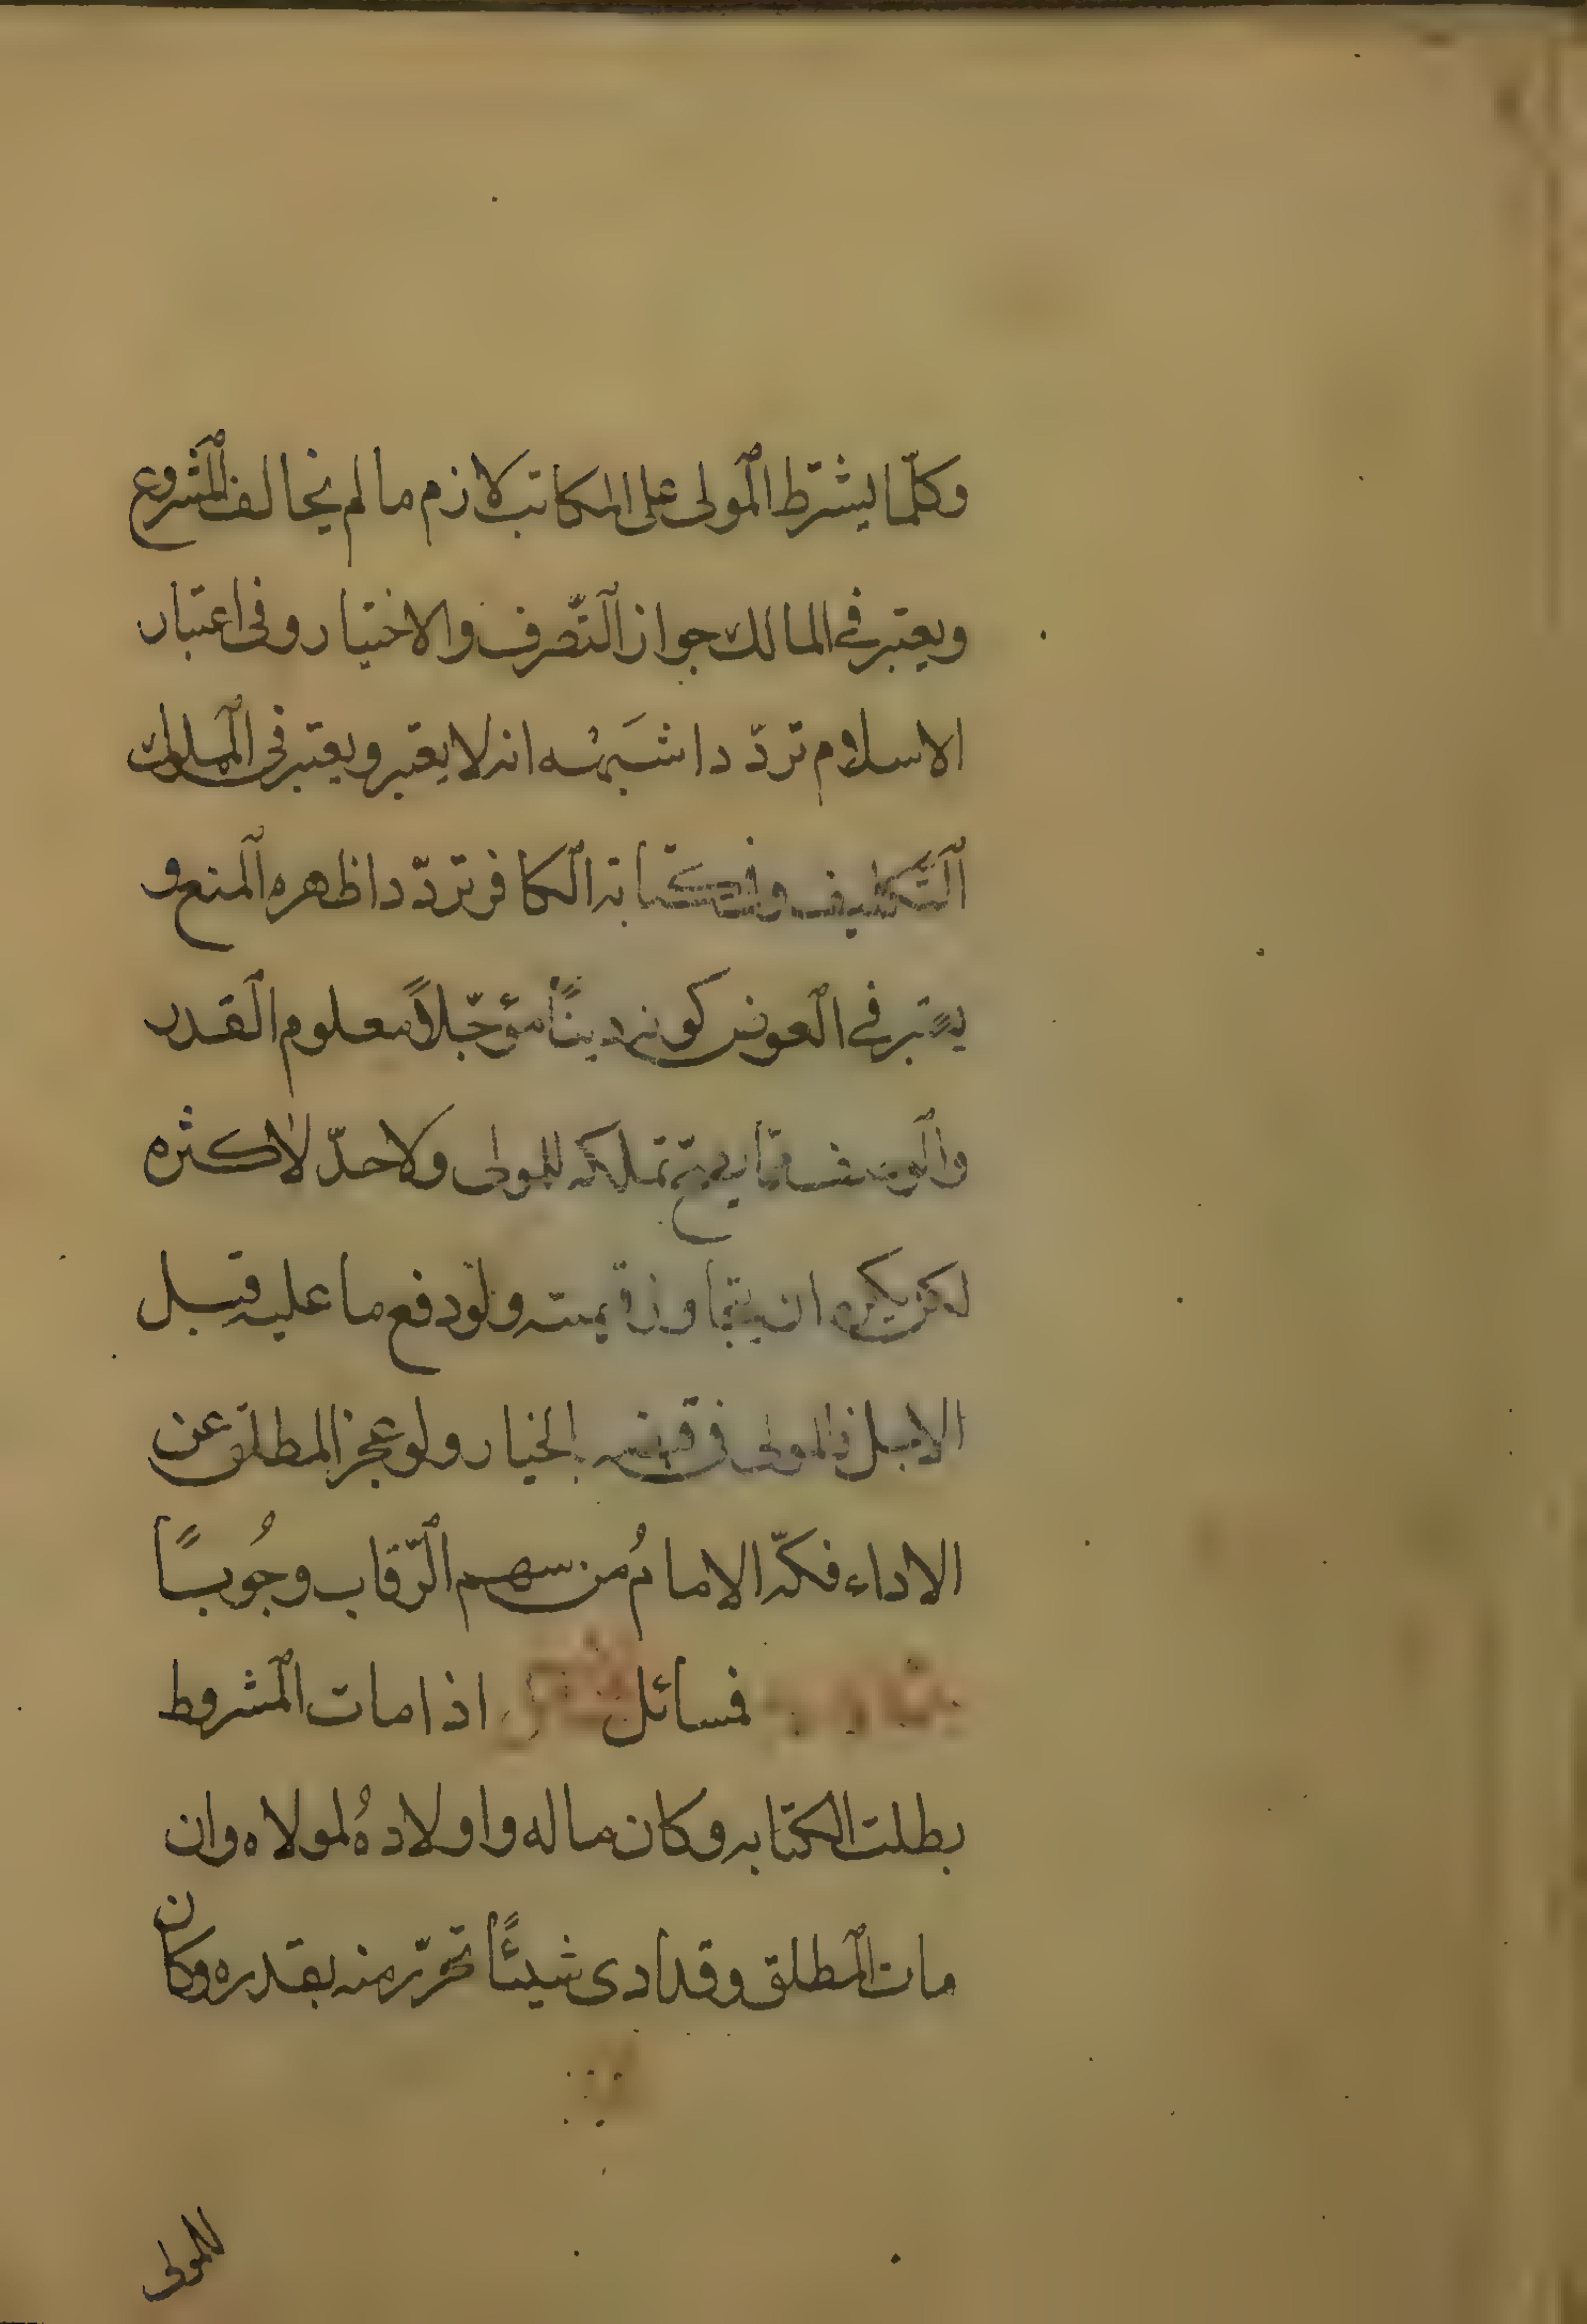 وكلّما يشترط المولى على المكاتب لازم ما لم يخالف المشروع
ويعتبر في المالك جواز التّصرف والاختيار وفى اعتبار
الاسلام تردّد اشبَهُه انه لا يعتبر ويعتبر فى المملوك
التَّكليف وفى كتابة الكافر تردّد اظهره المنع و
يعتبر في العوض كونه دينًا مؤجّلاً معلوم القدر
والوصف ممّا يصحّ تملكه للمولى ولا حدّ لأكثره
لكن يكره ان يتجاوز قيمته ولو دفع ما عليه قبل
الاجل فالمولى فى قبضه بالخيار ولو عجز المطلق عن
الاداء فكّه الامامُ من سهم الرّقاب وجُوبًا
فمسائل اذا مات المشروط
بطلت الكتابه وكان ماله واولادهُ لمولاه وان
مات المطلق وقد ادى شيئًا تحرّر منه بقدره وكان
للمولى